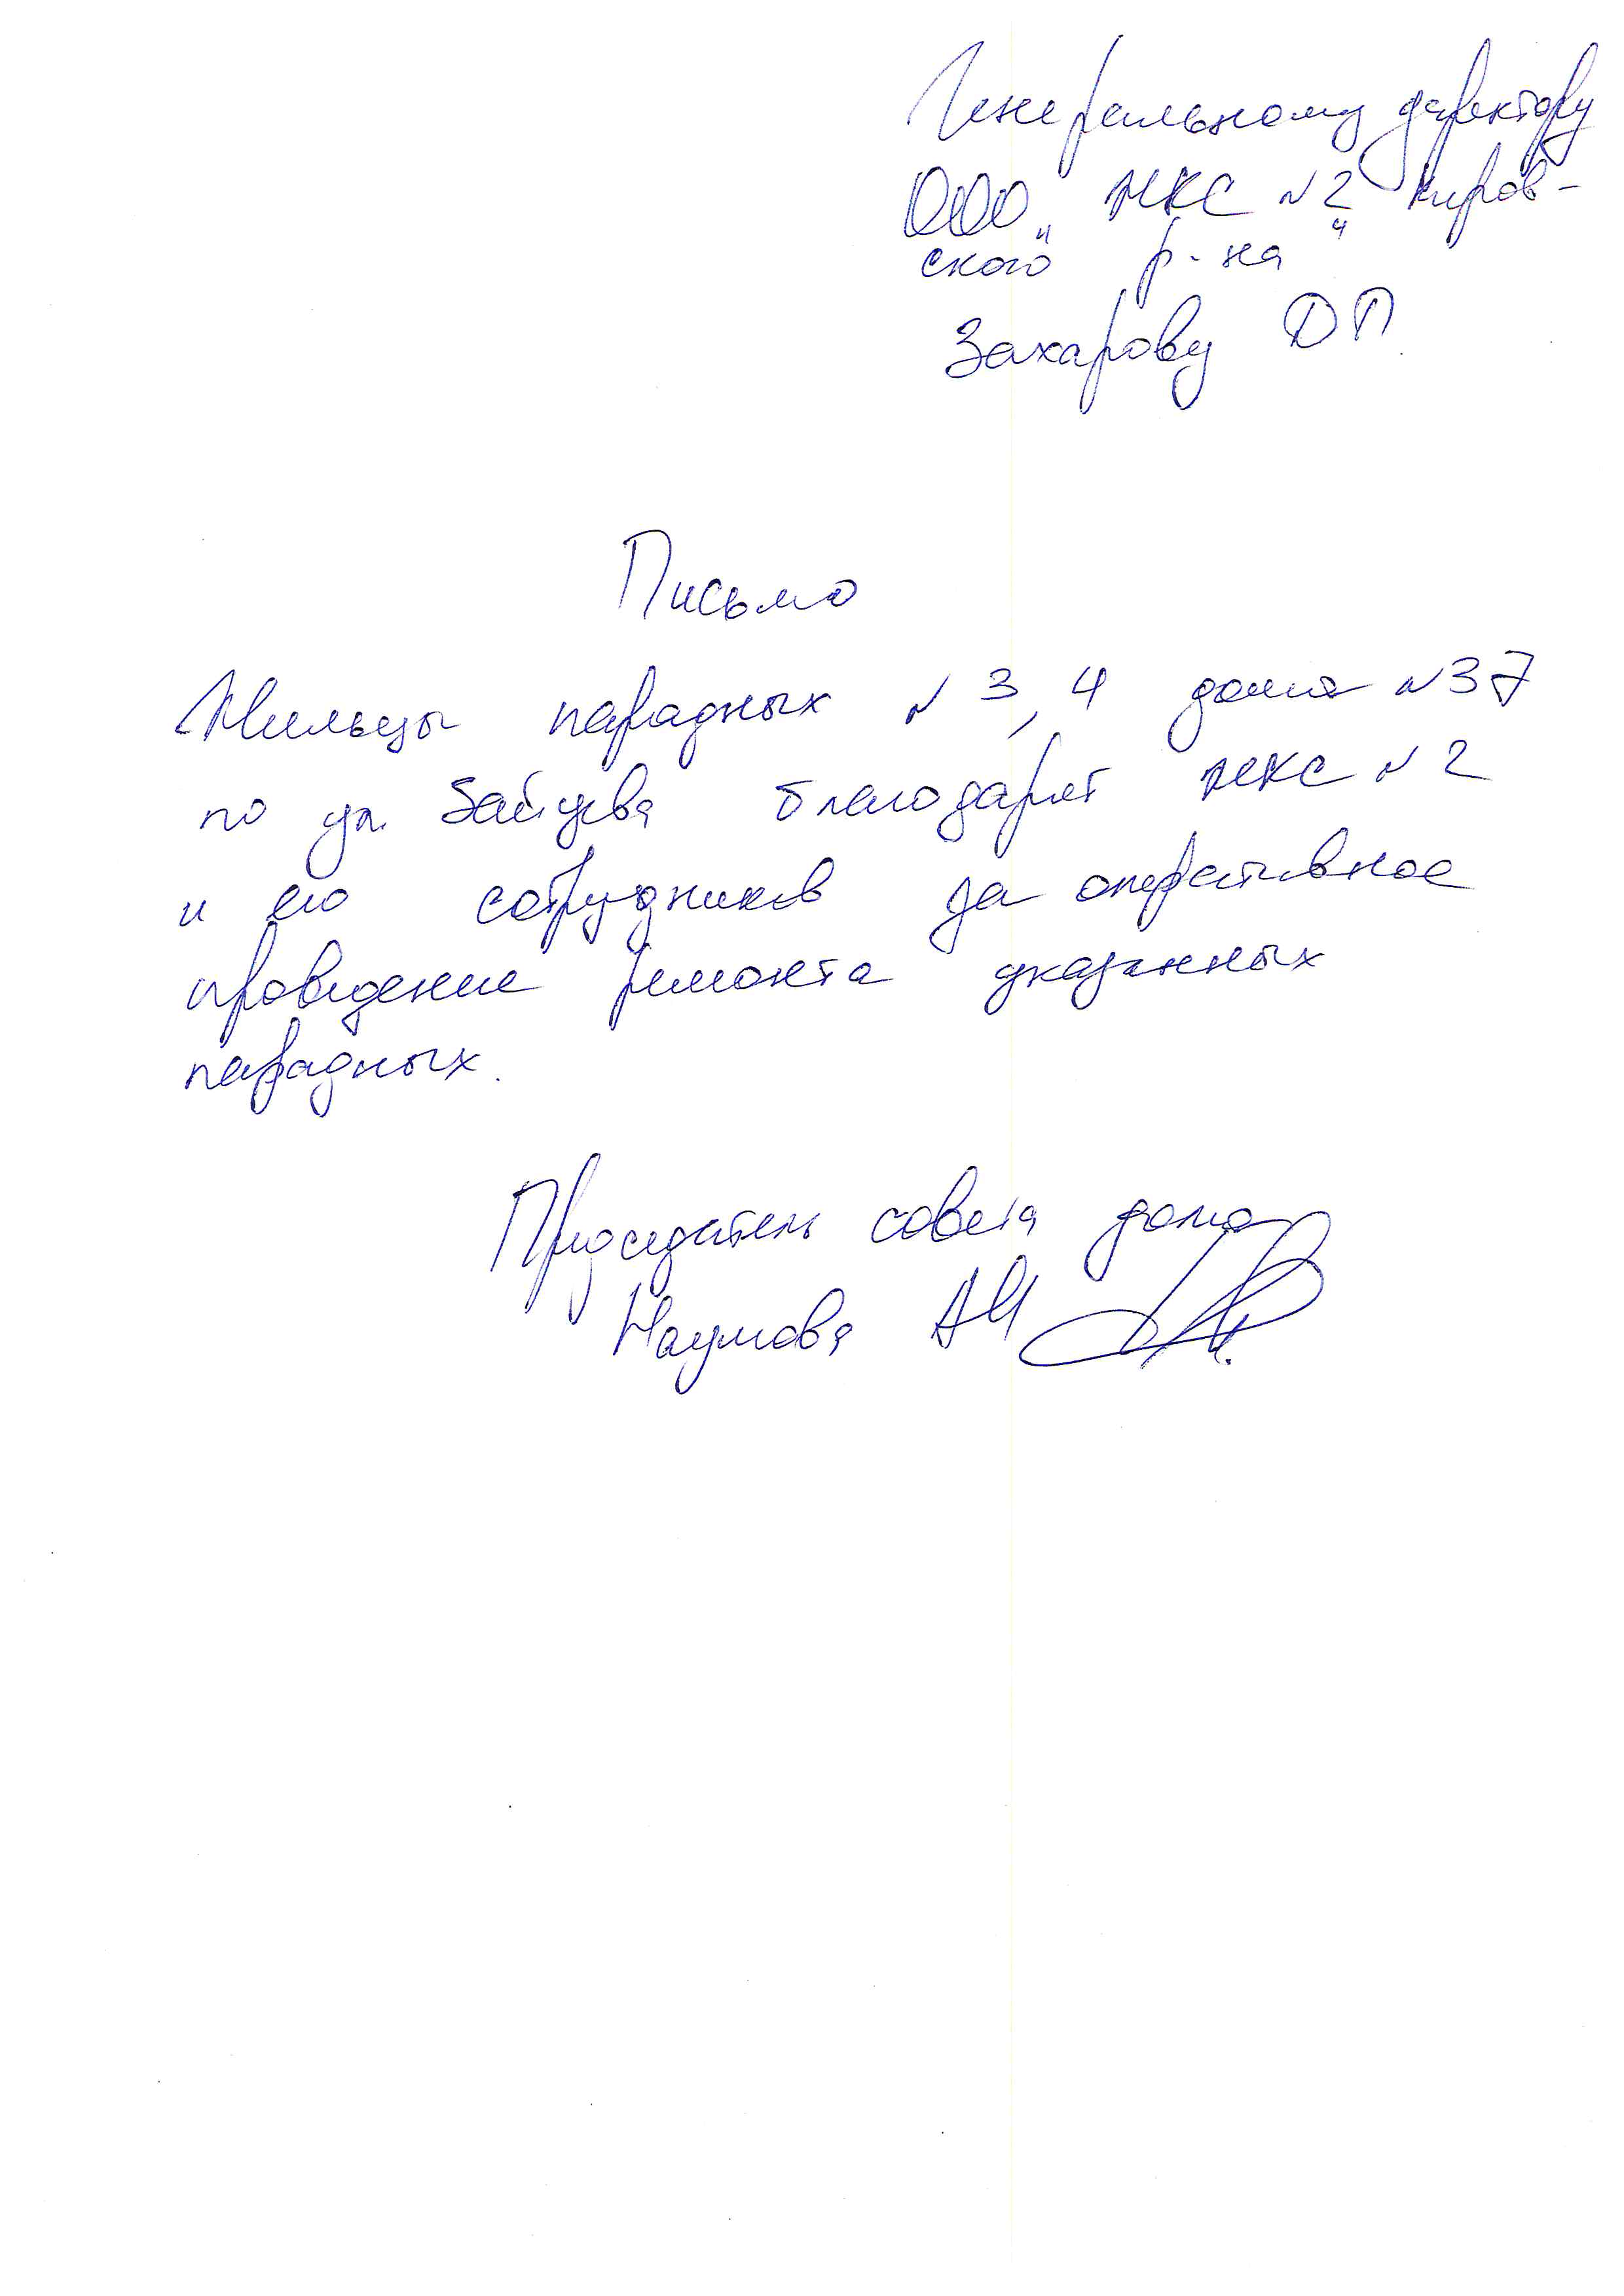 Генеральному директору
ООО „ЖКС №2 Киров-
ского р-на“
Захарову ДП.
Письмо
Жильцы парадных № 3, 4 дома №37
по ул. Зайцева благодарят ЖКС №2
и его сотрудников за оперативное
проведение ремонта указанных
парадных.
Председатель совета дома
Наумова АИ